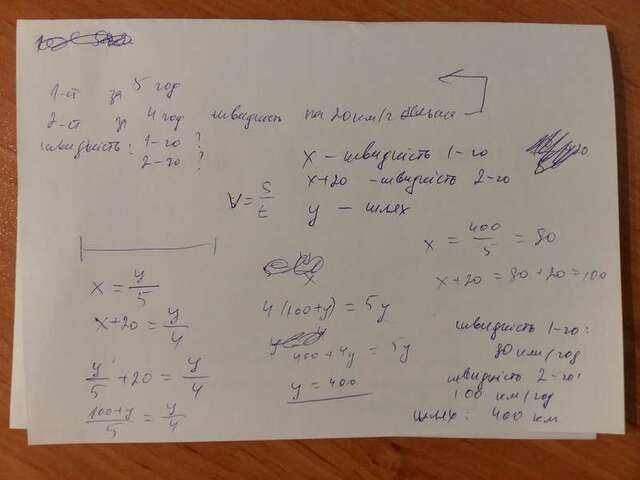 1-ст за 5 год
2-ст за 4 год швидкість на 20 км/г більша
швидкість: 1-го ?
2-го ?
x - швидкість 1-го
x+20 - швидкість 2-го
y - шлях
V = S/T
x = y/5
x+20 = y/4
y/5 + 20 = y/4
(100+y)/5 = y/4
4(100+y) = 5y
400+4y = 5y
y = 400
x = 400/5 = 80
x+20 = 80+20 = 100
швидкість 1-го:
80 км/год
швидкість 2-го:
100 км/год
шлях: 400 км